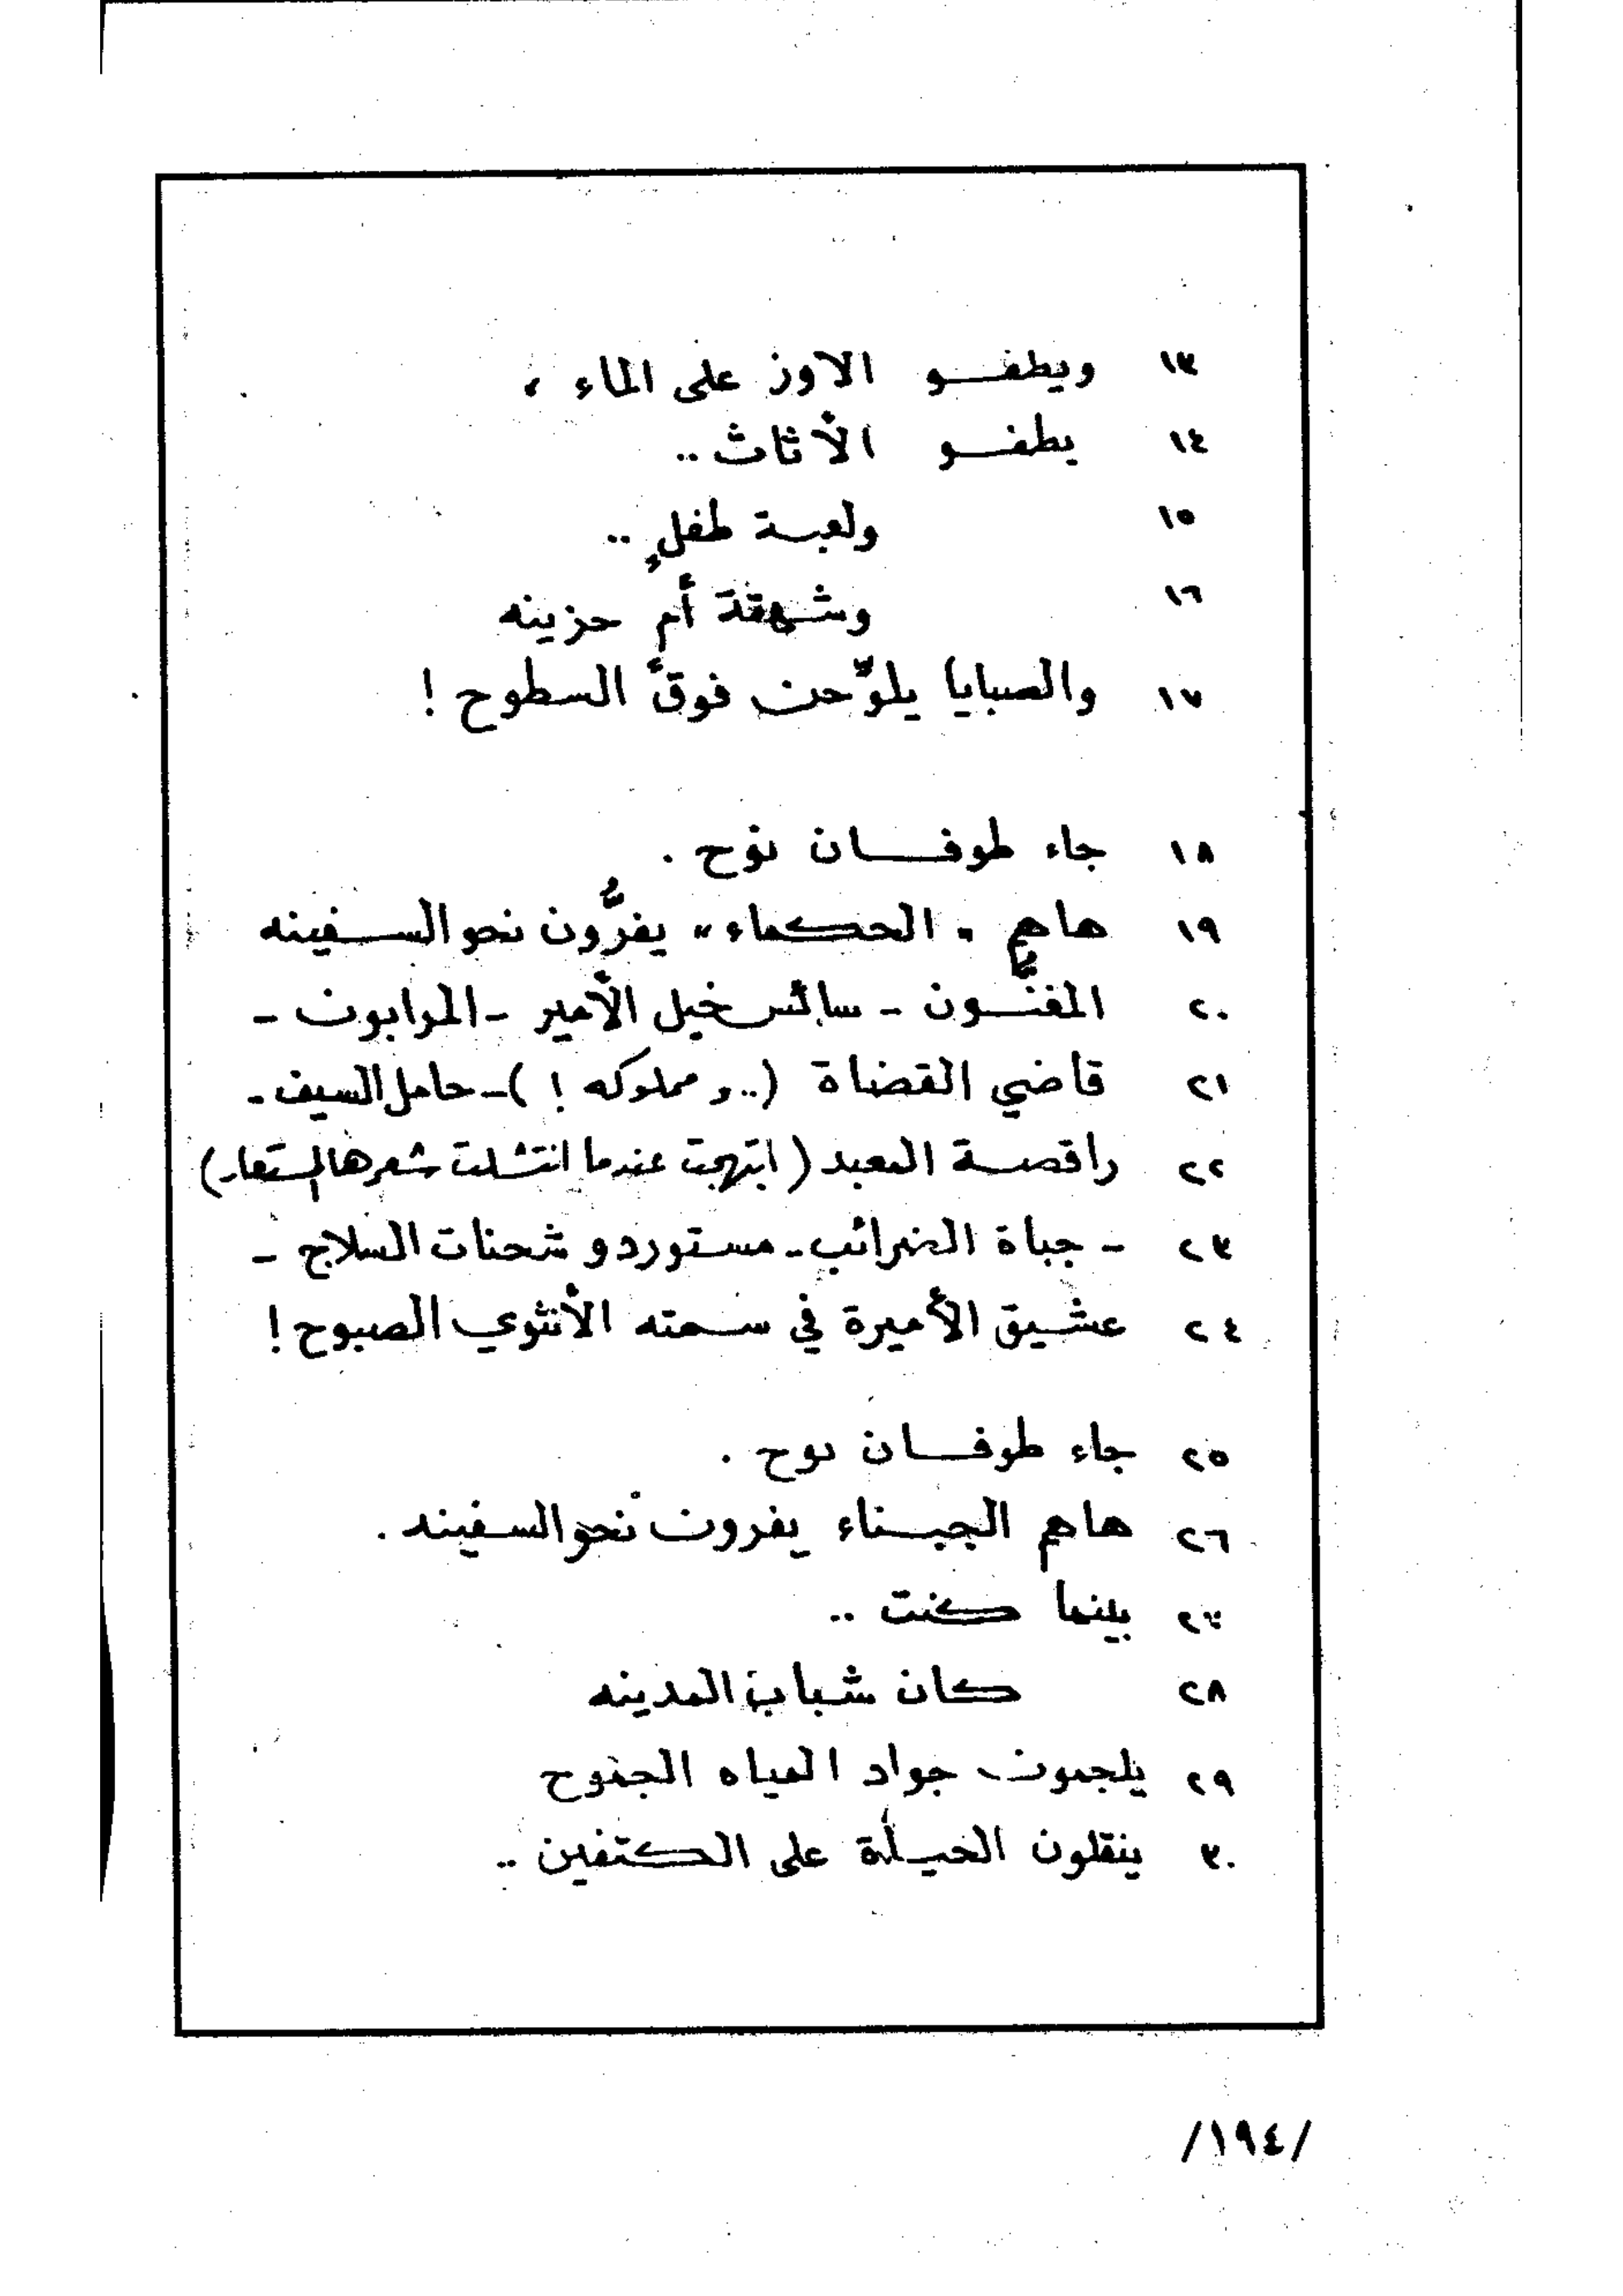 ١٣ ويطفو الاوز على الماء ،
١٤ يطفو الأثاث ..
١٥ ولعبة طفلٍ ..
١٦ وشهقة أم حزينه
١٧ والصبايا يلوّحن فوقَ السطوح !
١٨ جاء طوفان نوح .
١٩ هاهم " الحكماء " يفرُّون نحو السفينه
٢٠ المغنُّون - سائس خيل الأمير - المرابون -
٢١ قاضي القضاة ( .. ومملوكه ! ) - حامل السيف -
٢٢ راقصة المعبد ( ابتهجت عندما انتشلت شعرها المستعار )
٢٣ - جباة الضرائب - مستوردو شحنات السلاح -
٢٤ عشيق الأميرة في سمته الأنثوي الصبوح !
٢٥ جاء طوفان نوح .
٢٦ هاهم الجبناء يفرون نحو السفينه .
٢٧ بينما كنت ..
٢٨ كان شباب المدينه
٢٩ يلجمون جواد المياه الجموح
٣٠ ينقلون المياه على الكتفين ..
/١٩٤/